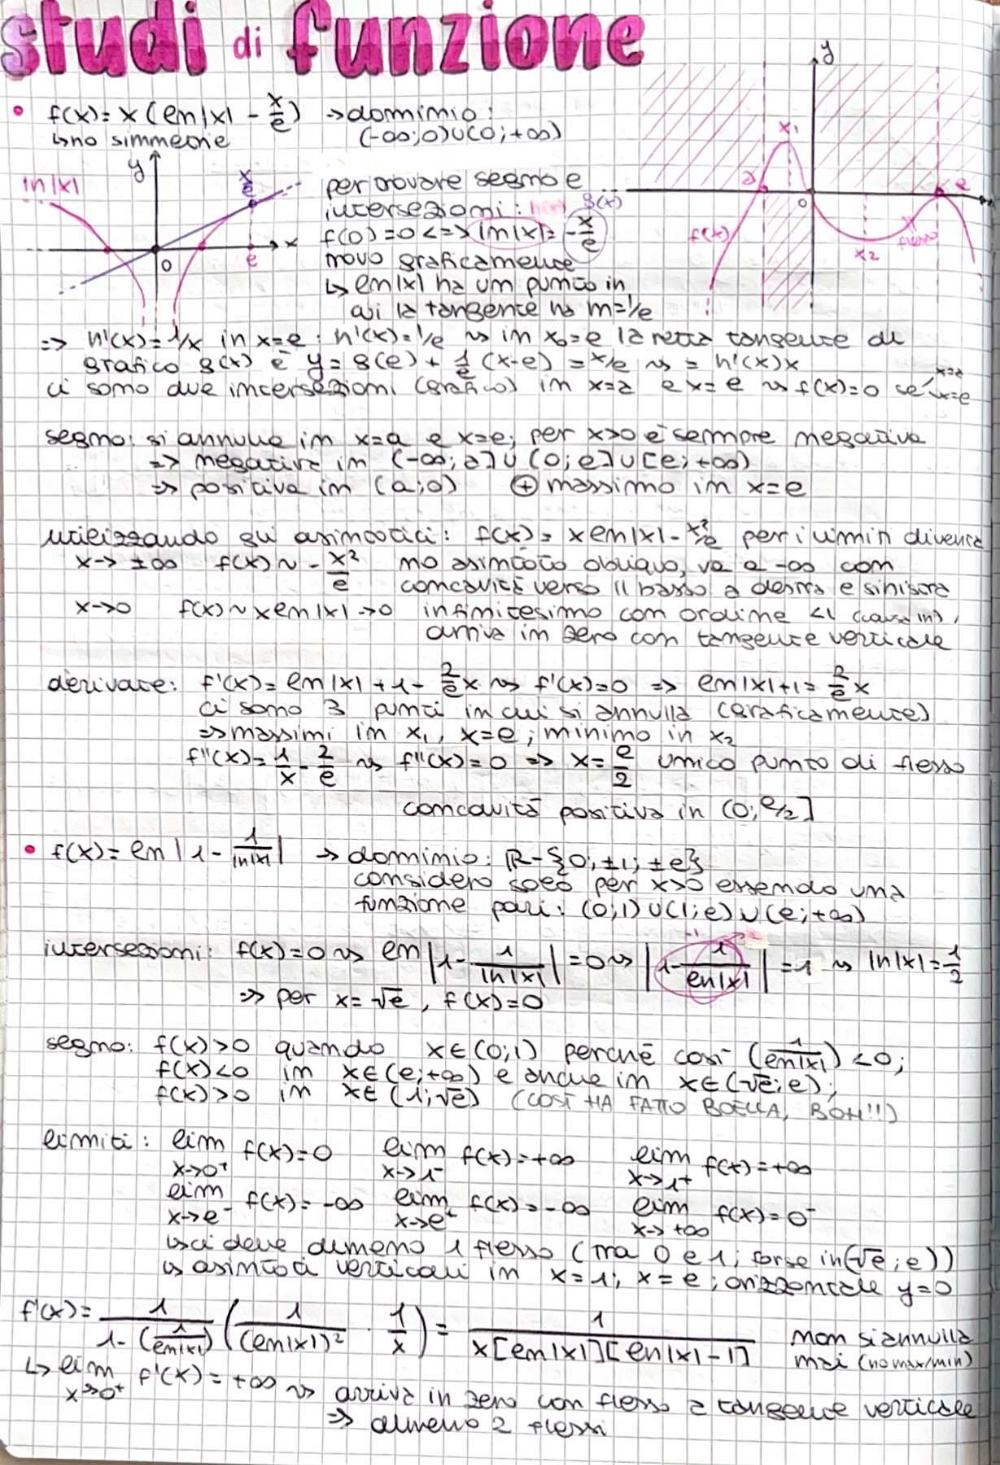 studi di funzione
• f(x) = x (ln|x| - x/e) → dominio:
↳ no simmetrie (-∞;0)∪(0;+∞)
ln|x| y x/e x 0 e
per trovare segno e
intersezioni: h(x) g(x)
f(0)=0 <=> ln|x| = x/e
trovo graficamente
↳ ln|x| ha un punto in
cui la tangente ha m=1/e
y x₁ a 0 e f(x) x₂ flesso
=> h'(x)=1/x in x=e: h'(x)=1/e ⇝ in x₀=e la retta tangente al
grafico g(x) è y = g(e) + 1/e (x-e) = x/e ⇝ = h'(x)x
ci sono due intersezioni (grafico) in x=a e x=e ⇝ f(x)=0 se x=a x=e
segno: si annulla in x=a e x=e; per x>0 è sempre negativa
=> negativa in (-∞;a]∪(0;e]∪[e;+∞)
=> positiva in (a;0) ⊕ massimo in x=e
utilizzando gli asintotici: f(x) = x ln|x| - x²/e per i limiti diventa
x→±∞ f(x) ~ -x²/e no asintoto obliquo, va a -∞ con
concavità verso il basso a destra e sinistra
x→0 f(x) ~ x ln|x| → 0 infinitesimo con ordine <1 (causa ln),
arriva in zero con tangente verticale
derivate: f'(x) = ln|x| + 1 - 2/e x ⇝ f'(x)=0 => ln|x|+1 = 2/e x
ci sono 3 punti in cui si annulla (graficamente)
=> massimi in x₁, x=e; minimo in x₂
f''(x) = 1/x - 2/e ⇝ f''(x)=0 => x = e/2 unico punto di flesso
concavità positiva in (0;e/2]
• f(x) = ln |1 - 1/ln|x|| → dominio: R-{0;±1;±e}
considero solo per x>0 essendo una
funzione pari: (0;1)∪(1;e)∪(e;+∞)
intersezioni: f(x)=0 ⇝ ln |1 - 1/ln|x|| = 0 ⇝ |1 - 1/ln|x|| = 1 ⇝ ln|x| = 1/2
=> per x=√e, f(x)=0
segno: f(x)>0 quando x∈(0;1) perché così (1/ln|x|) <0;
f(x)<0 in x∈(e;+∞) e anche in x∈(√e;e);
f(x)>0 in x∈(1;√e) (COSÌ HA FATTO BOELLA, BOH!!)
limiti: lim x→0⁺ f(x)=0 lim x→1⁻ f(x)=+∞ lim x→1⁺ f(x)=+∞
lim x→e⁻ f(x)=-∞ lim x→e⁺ f(x)=-∞ lim x→+∞ f(x)=0⁻
↳ ci deve almeno 1 flesso (tra 0 e 1; forse in(√e;e))
↳ asintoti verticali in x=1; x=e; orizzontale y=0
f'(x) = 1/(1-(1/ln|x|)) (1/(ln|x|)² · 1/x) = 1/(x[ln|x|][ln|x|-1]) non si annulla
mai (no max/min)
↳ lim x→0⁺ f'(x)=+∞ ⇝ arriva in zero con flesso a tangente verticale
=> almeno 2 flessi